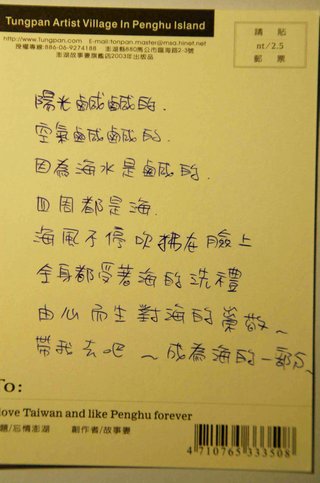 Tungpan Artist Village In Penghu Island
http://www.Tungpan.com E-mail:tonpan.master@msa.hinet.net
授權專線:886-06-9274188 澎湖縣880馬公市臨海路2-3號
澎湖故事妻旗艦店2003年出版品
請貼
nt/2.5
郵票
陽光鹹鹹的.
空氣鹹鹹的.
因為海水是鹹的.
四周都是海.
海風不停吹拂在臉上
全身都受著海的洗禮
由心而生對海的榮敬~
帶我去吧~成為海的一部分~
To:
love Taiwan and like Penghu forever
題/忘情澎湖 創作者/故事妻
4710765333508